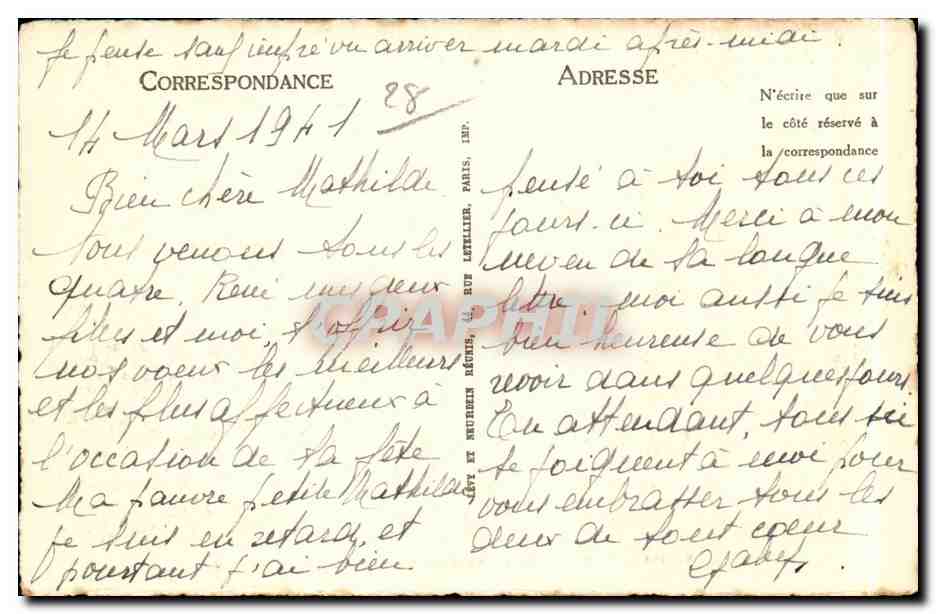 Je pense sauf imprévu arriver mardi après-midi.
CORRESPONDANCE
28
14 Mars 1941
Bien chère Mathilde
Nous venons tous les
quatre, René mes deux
filles et moi, t'offrir
nos voeux les meilleurs
et les plus affectueux à
l'occasion de ta fête
Ma pauvre petite Mathilde
je suis en retard, et
pourtant j'ai bien
LÉVY ET NEURDEIN RÉUNIS, 44, RUE LETELLIER, PARIS, IMP.
ADRESSE
N'écrire que sur
le côté réservé à
la correspondance
pensé à toi tous ces
jours-ci. Merci à mon
neveu de sa longue
lettre, moi aussi je suis
bien heureuse de vous
revoir dans quelques jours
En attendant, tous
se joignent à moi pour
vous embrasser tous les
deux de tout coeur
CPAPHIL